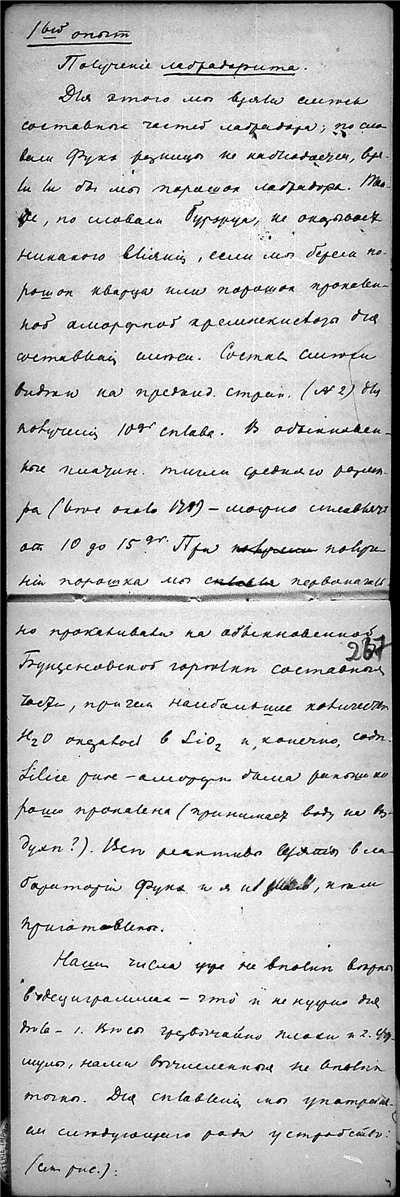 1ый опыт
Полученіе лабрадорита.
Для этого мы взяли смесь
составных частей лабрадора; по сло-
вам Фука разницы не наблюдается, взя-
ли ли бы мы порошок лабрадора. Так-
же, по словам не оказывает
никакого вліянія, если мы берем по-
рошок кварца или порошок прокален-
ной аморфной кремнекислоты для
составленія смеси. Состав смеси
виден на предыд. стран. (№ 2) для
полученія 10 gr сплава. В обыкновен-
ные платин. тигли средняго разме-
ра (вес около ) – можно сплавлять
от 10 до 15 gr. При получе-
ніи порошка мы первоначаль-
но прокаливали на обыкновенной
267
Бунзеновской горелки составныя
части, причем наибольшее количество
H2O оказалось в SiO2 и, конечно, соды.
Silice pure – аморфн. была раньше хо-
рошо прокалена (принимает воду из воз-
духа?). Все реактивы взяты в ла-
бораторіи Фука и я не , кем
приготовлены.
Наши числа уже не вполне верны
в дециграммах – что и не нужно для
дела – 1. Весы чрезвычайно плохи и 2. фор-
мулы, нами вычисленныя не вполне
точны. Для сплавленія мы употребля-
ем следующего рода устройство:
(см. рис.):